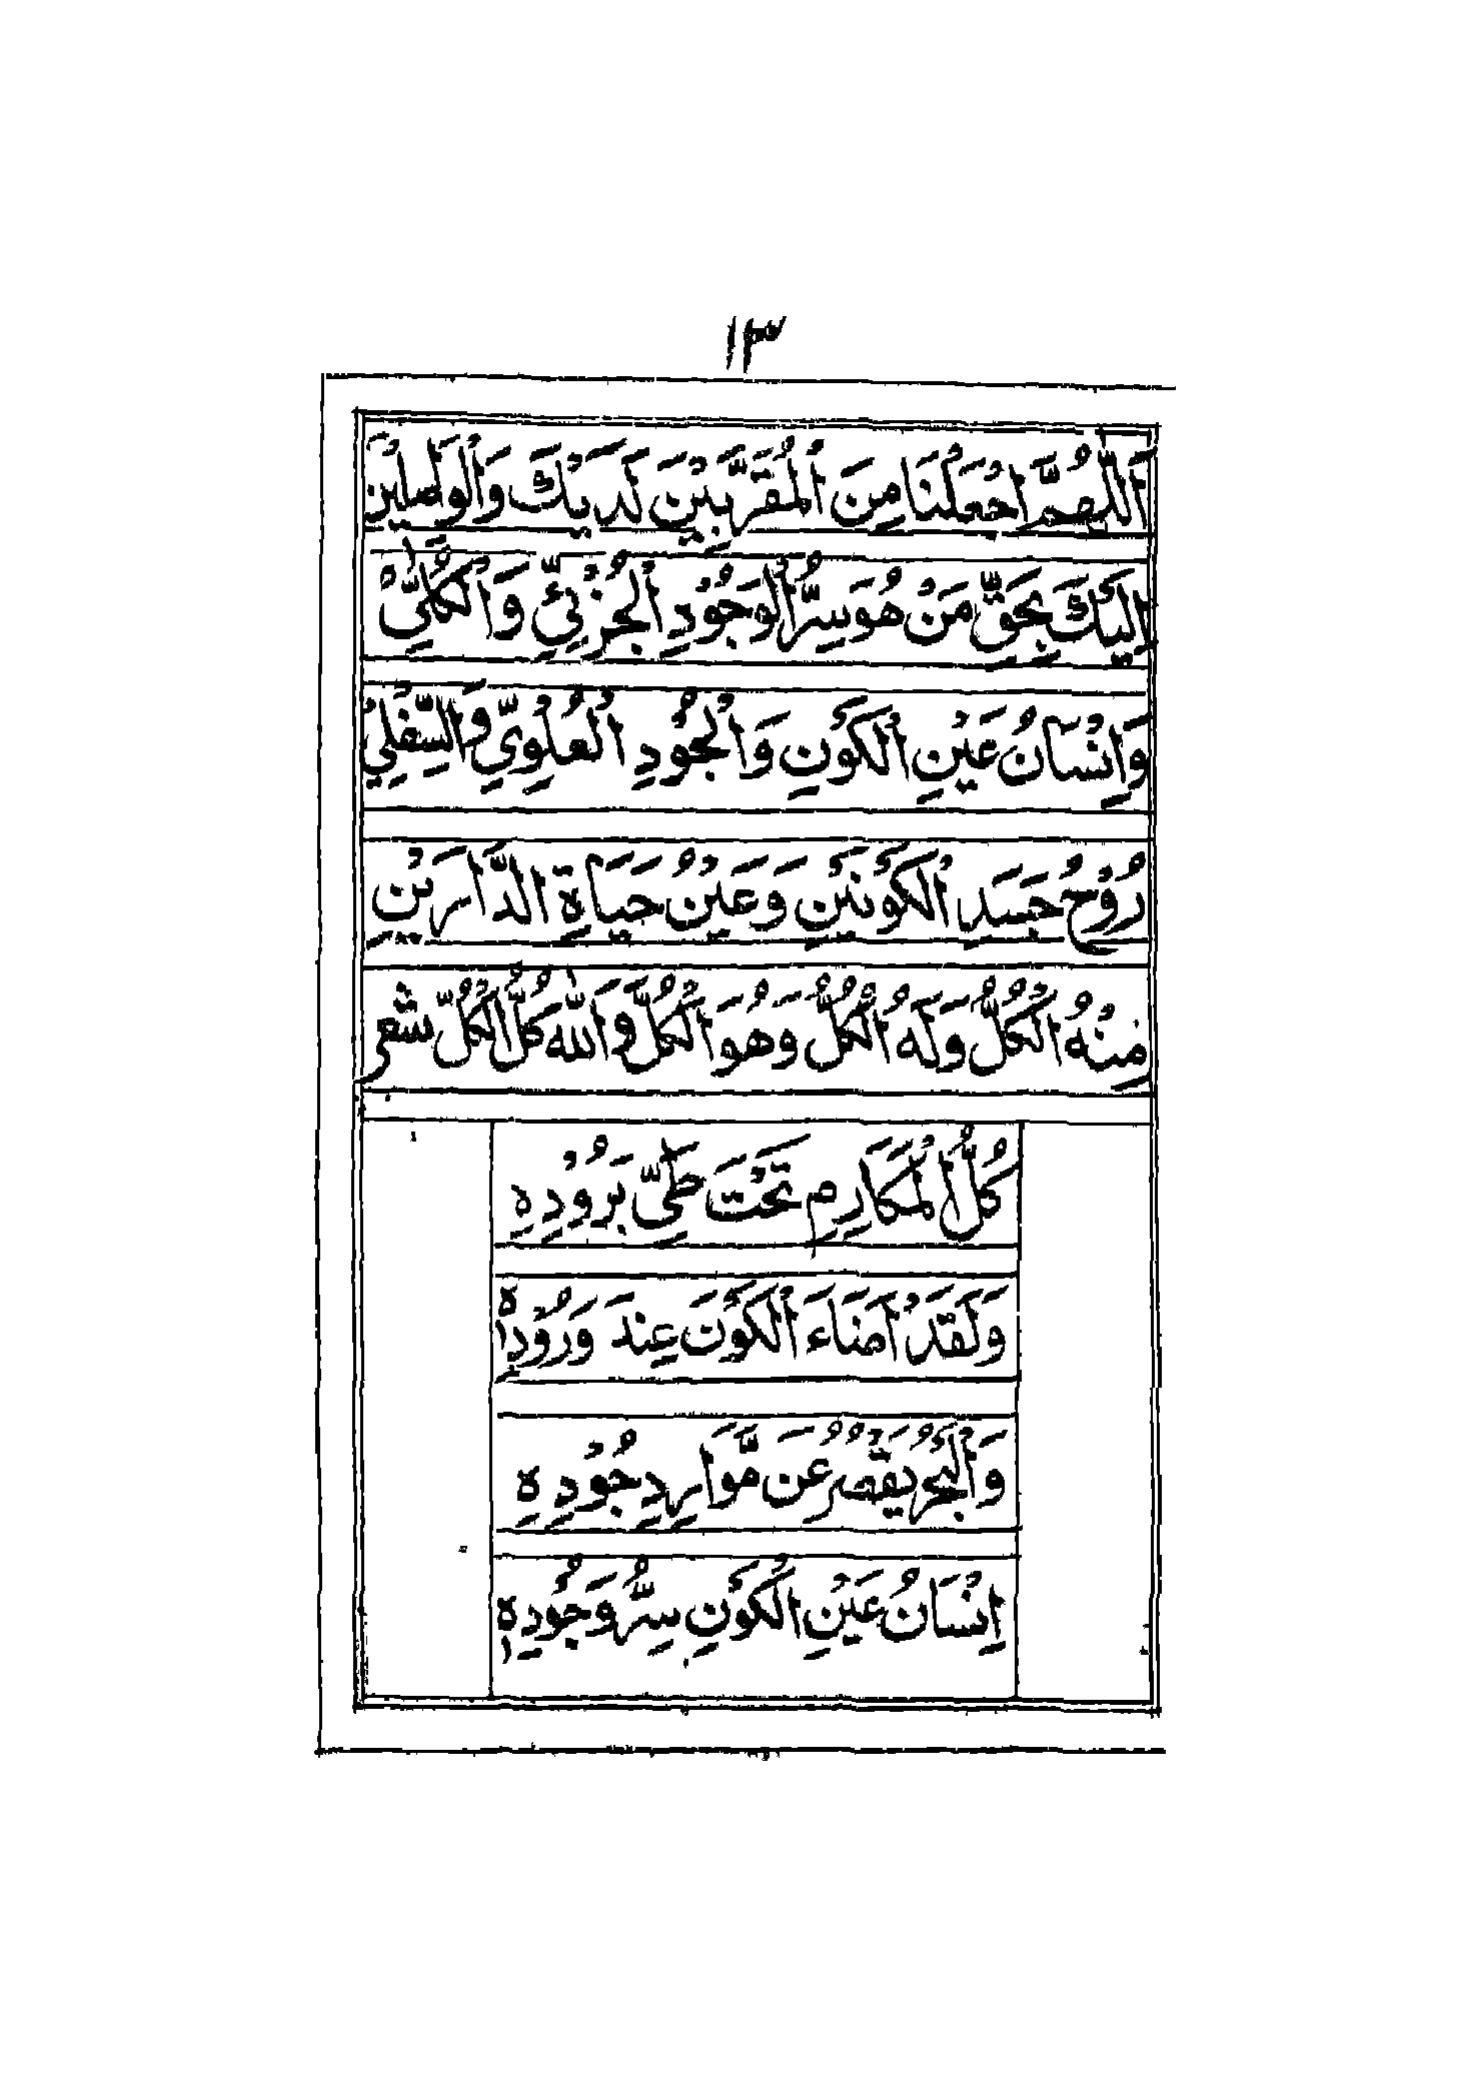 ١٣
اَللّٰهُمَّ اجْعَلْنَا مِنَ الْمُقَرَّبِيْنَ لَدَيْكَ وَالْوَاصِلِيْنَ
اِلَيْكَ بِحَقِّ مَنْ هُوَ سِرُّ الْوُجُوْدِ الْجُزْئِيِّ وَالْكُلِّيِّ
وَاِنْسَانُ عَيْنِ الْكَوْنِ وَالْجُوْدِ الْعُلْوِيِّ وَالسِّفْلِيِّ
رُوْحُ جَسَدِ الْكَوْنَيْنِ وَعَيْنُ حَيَاةِ الدَّارَيْنِ
مِنْهُ الْكُلُّ وَلَهُ الْكُلُّ وَهُوَ الْكُلُّ وَاللّٰهُ كُلُّ الْكُلِّ شعر
كُلُّ الْمَكَارِمِ تَحْتَ طَيِّ بَرُوْدِهِ
وَلَقَدْ اَضَاءَ الْكَوْنَ عِنْدَ وَرُوْدِهٖ
وَالْبَحْرُ يَقْصُرُ عَنْ مَّوَارِدِ جُوْدِهِ
اِنْسَانُ عَيْنِ الْكَوْنِ سِرُّ وُجُوْدِهٖ